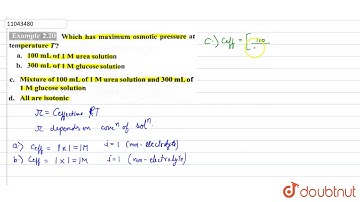 11043480
Example 2.20 Which has maximum osmotic pressure at
temperature T?
a. 100 mL of 1 M urea solution
b. 300 mL of 1 M glucose solution
c. Mixture of 100 mL of 1 M urea solution and 300 mL of
1 M glucose solution
d. All are isotonic
π = Ceffective RT
π depends on concⁿ of solⁿ.
a) Ceff = 1×1 = 1M i=1 (non-electrolyte)
b) Ceff = 1×1 = 1M i=1 (non-electrolyte)
c.) Ceff = [100
doubtnut